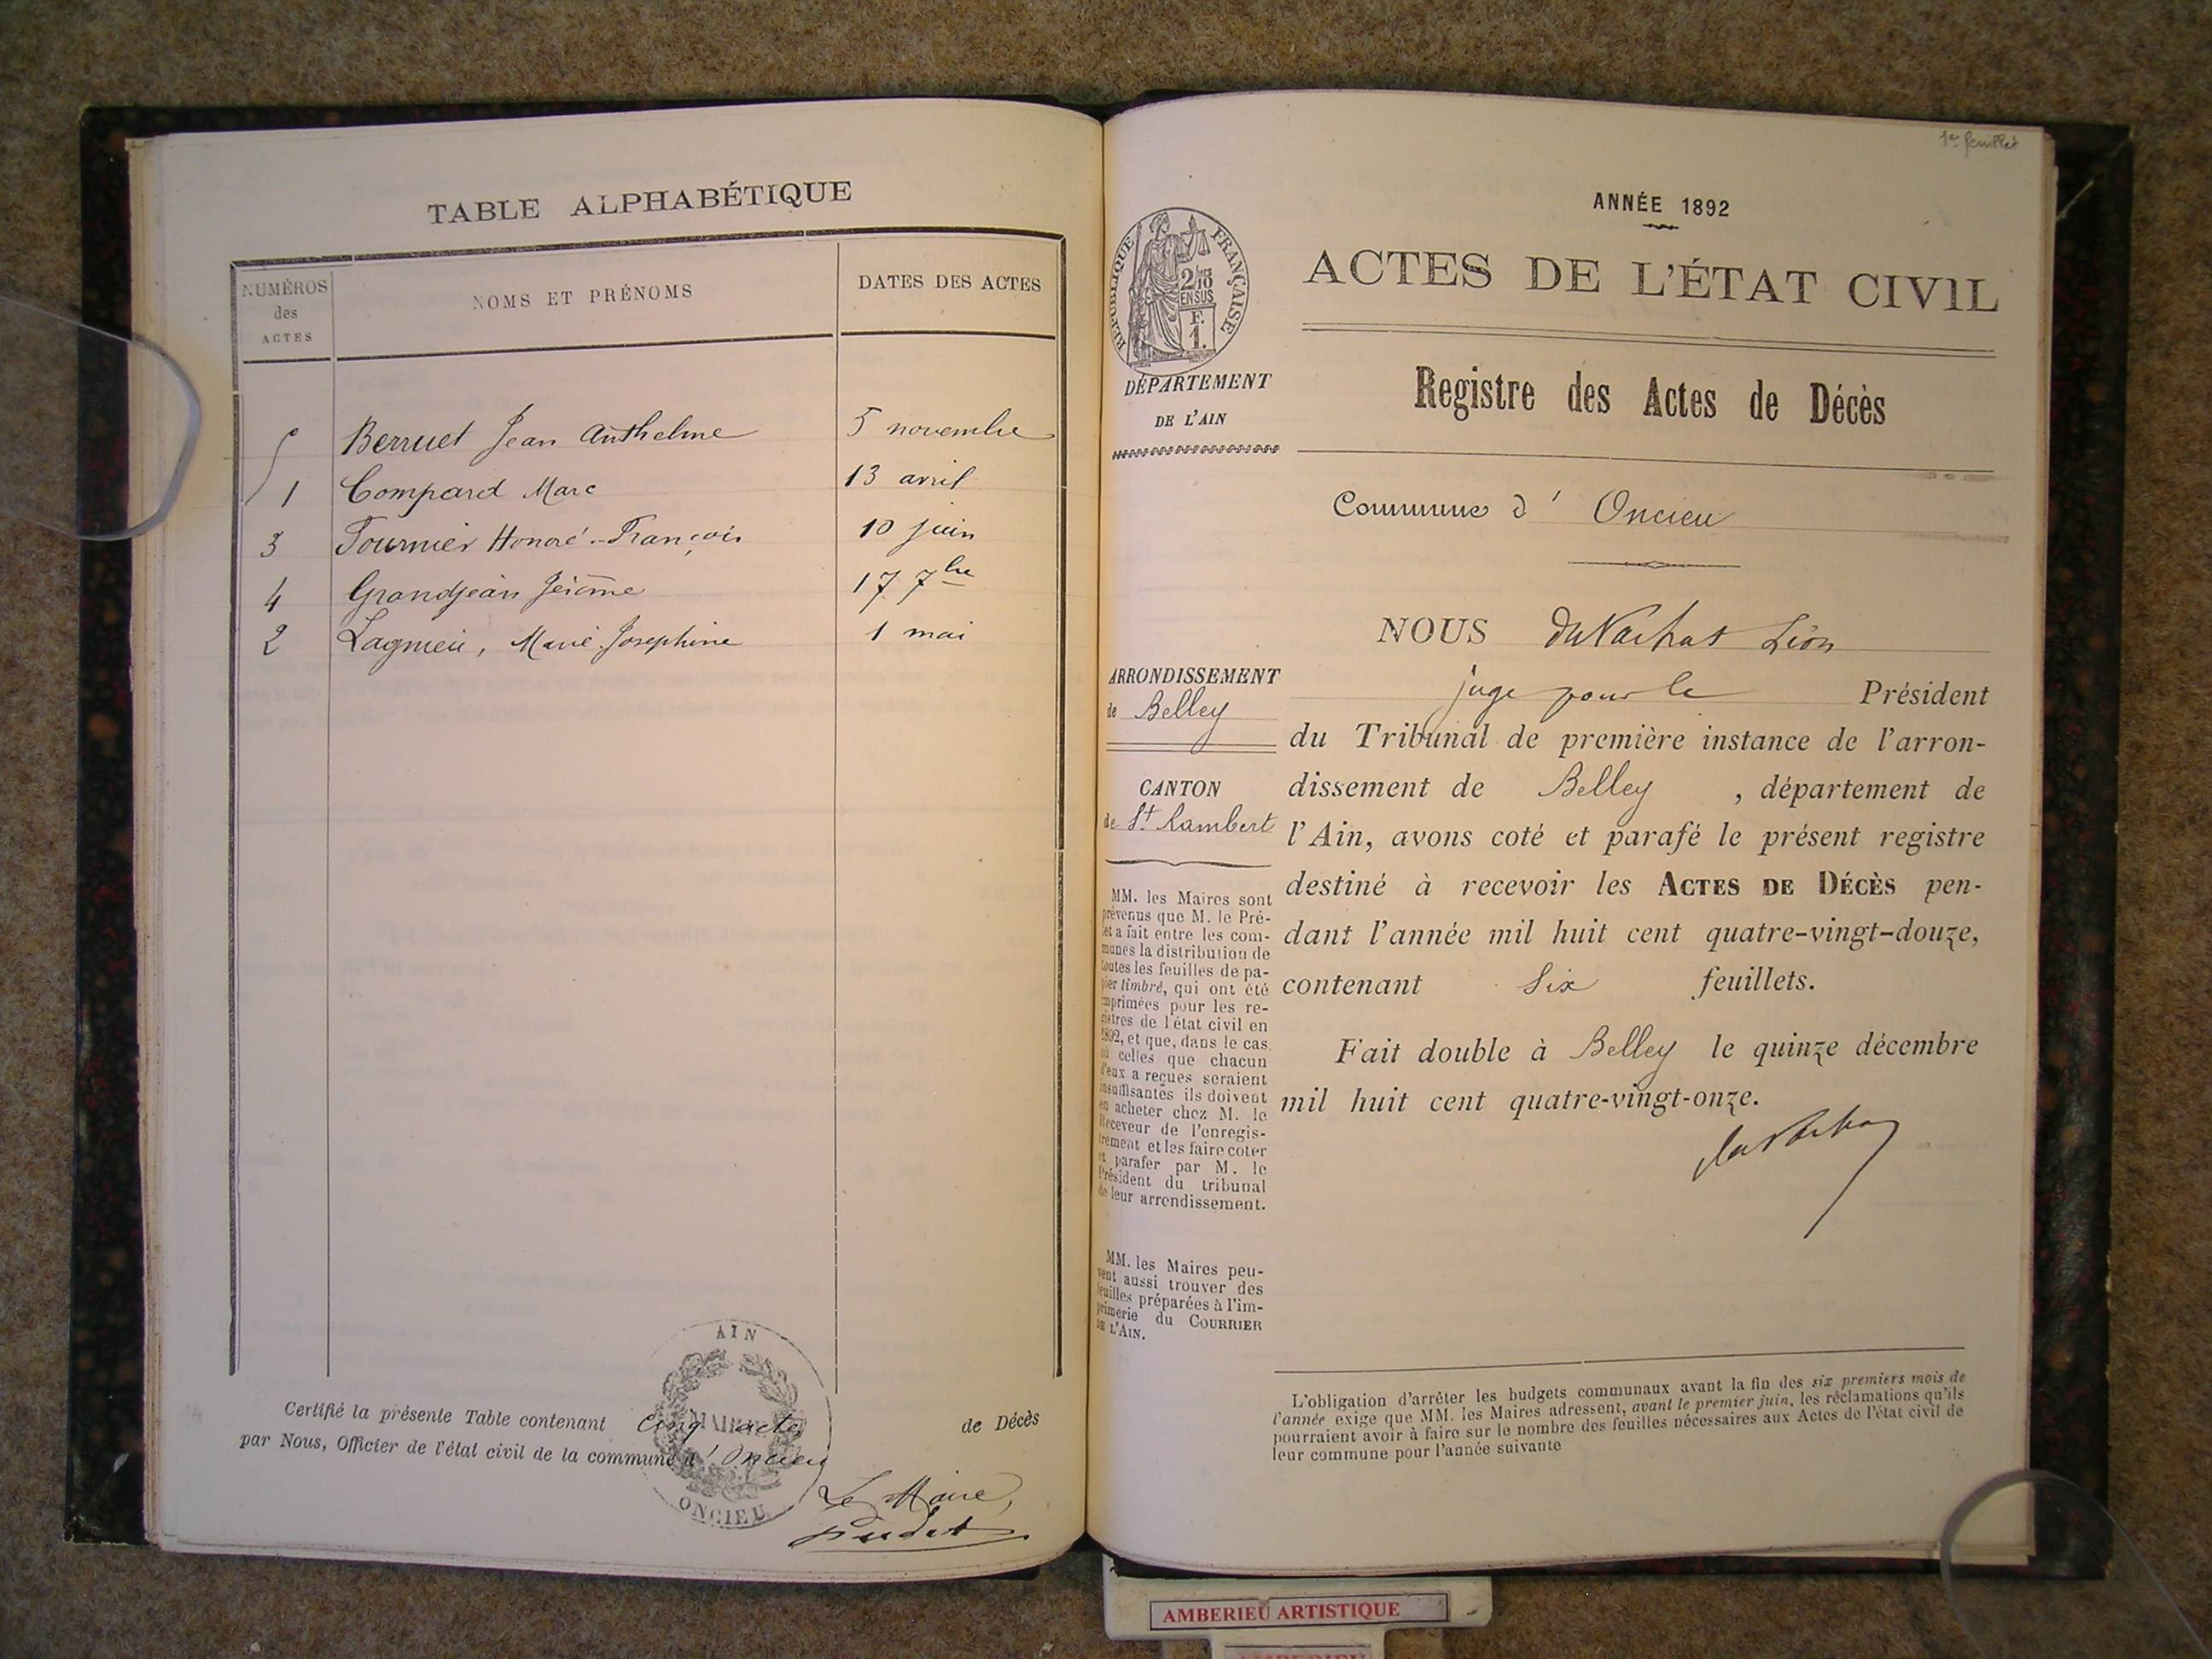 TABLE ALPHABÉTIQUE
NUMÉROS
des
ACTES
NOMS ET PRÉNOMS
DATES DES ACTES
5 Berruet Jean Anthelme 5 novembre
1 Compard Marc 13 avril
3 Fournier Honoré-François 10 juin
4 Grandjean Jérôme 17 7bre
2 Lagnieu, Marie Josephine 1 mai
Certifié la présente Table contenant cinq actes de Décès
par Nous, Officier de l'état civil de la commune d'Oncieu
AIN
MAIRIE
ONCIEU
Le Maire,
1er feuillet
ANNÉE 1892
ACTES DE L'ÉTAT CIVIL
RÉPUBLIQUE FRANÇAISE
2/10
EN SUS
F.
1.
DÉPARTEMENT
DE L'AIN
Registre des Actes de Décès
Commune d' Oncieu
NOUS duVachat Léon
juge pour le Président
du Tribunal de première instance de l'arron-
dissement de Belley , département de
l'Ain, avons coté et parafé le présent registre
destiné à recevoir les ACTES DE DÉCÈS pen-
dant l'année mil huit cent quatre-vingt-douze,
contenant Six feuillets.
Fait double à Belley le quinze décembre
mil huit cent quatre-vingt-onze.
ARRONDISSEMENT
de Belley
CANTON
de St Rambert
MM. les Maires sont
prévenus que M. le Pré-
fet a fait entre les com-
munes la distribution de
toutes les feuilles de pa-
pier timbré, qui ont été
imprimées pour les re-
gistres de l'état civil en
1892, et que, dans le cas
où celles que chacun
d'eux a reçues seraient
insuffisantes ils doivent
en acheter chez M. le
Receveur de l'enregis-
trement et les faire coter
et parafer par M. le
Président du tribunal
de leur arrondissement.
MM. les Maires peu-
vent aussi trouver des
feuilles préparées à l'im-
primerie du COURRIER
DE L'AIN.
L'obligation d'arrêter les budgets communaux avant la fin des six premiers mois de
l'année exige que MM. les Maires adressent, avant le premier juin, les réclamations qu'ils
pourraient avoir à faire sur le nombre des feuilles nécessaires aux Actes de l'état civil de
leur commune pour l'année suivante
AMBERIEU ARTISTIQUE
AMBERIEU